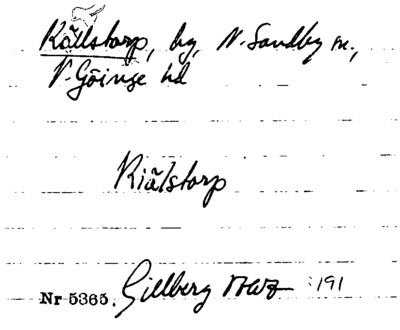 Källstorp, by, N. Sandby sn.,
V. Göinge hd
Kiälstorp
Nr 5365. Gillberg :191